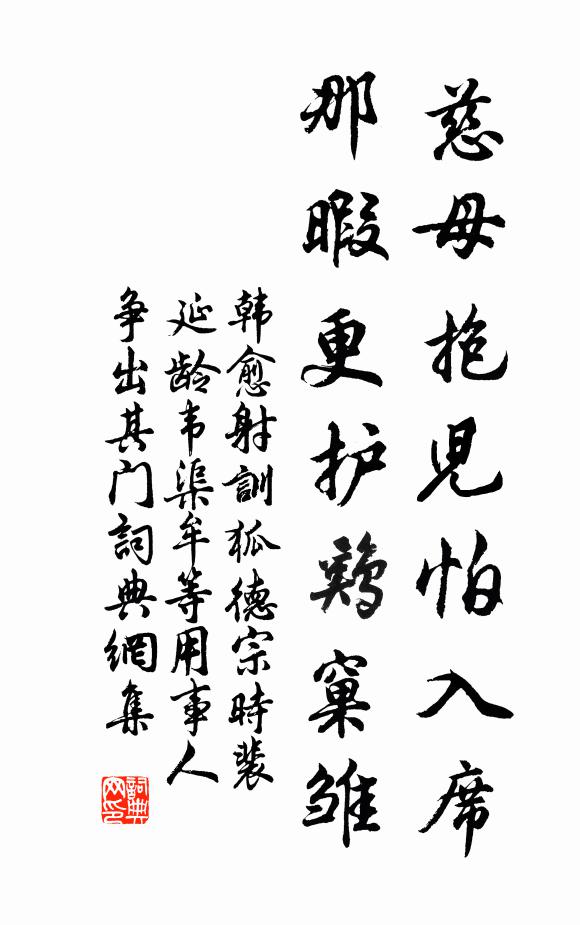 慈母抱児怕入席
那暇更护鷄窠雏
韩愈射訓狐德宗時裴
延龄韦渠牟等用事人
争出其门詞典網集
詞典网印